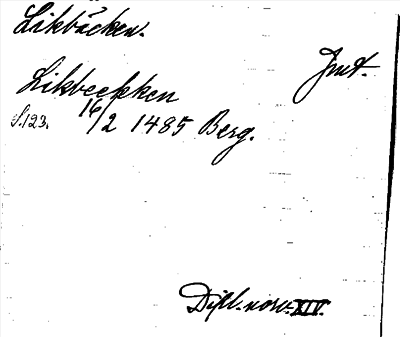 Likbäcken.
Jmt.
Likbeckken
S.123. 16/2 1485 Berg.
Dipl. norv. XIV.